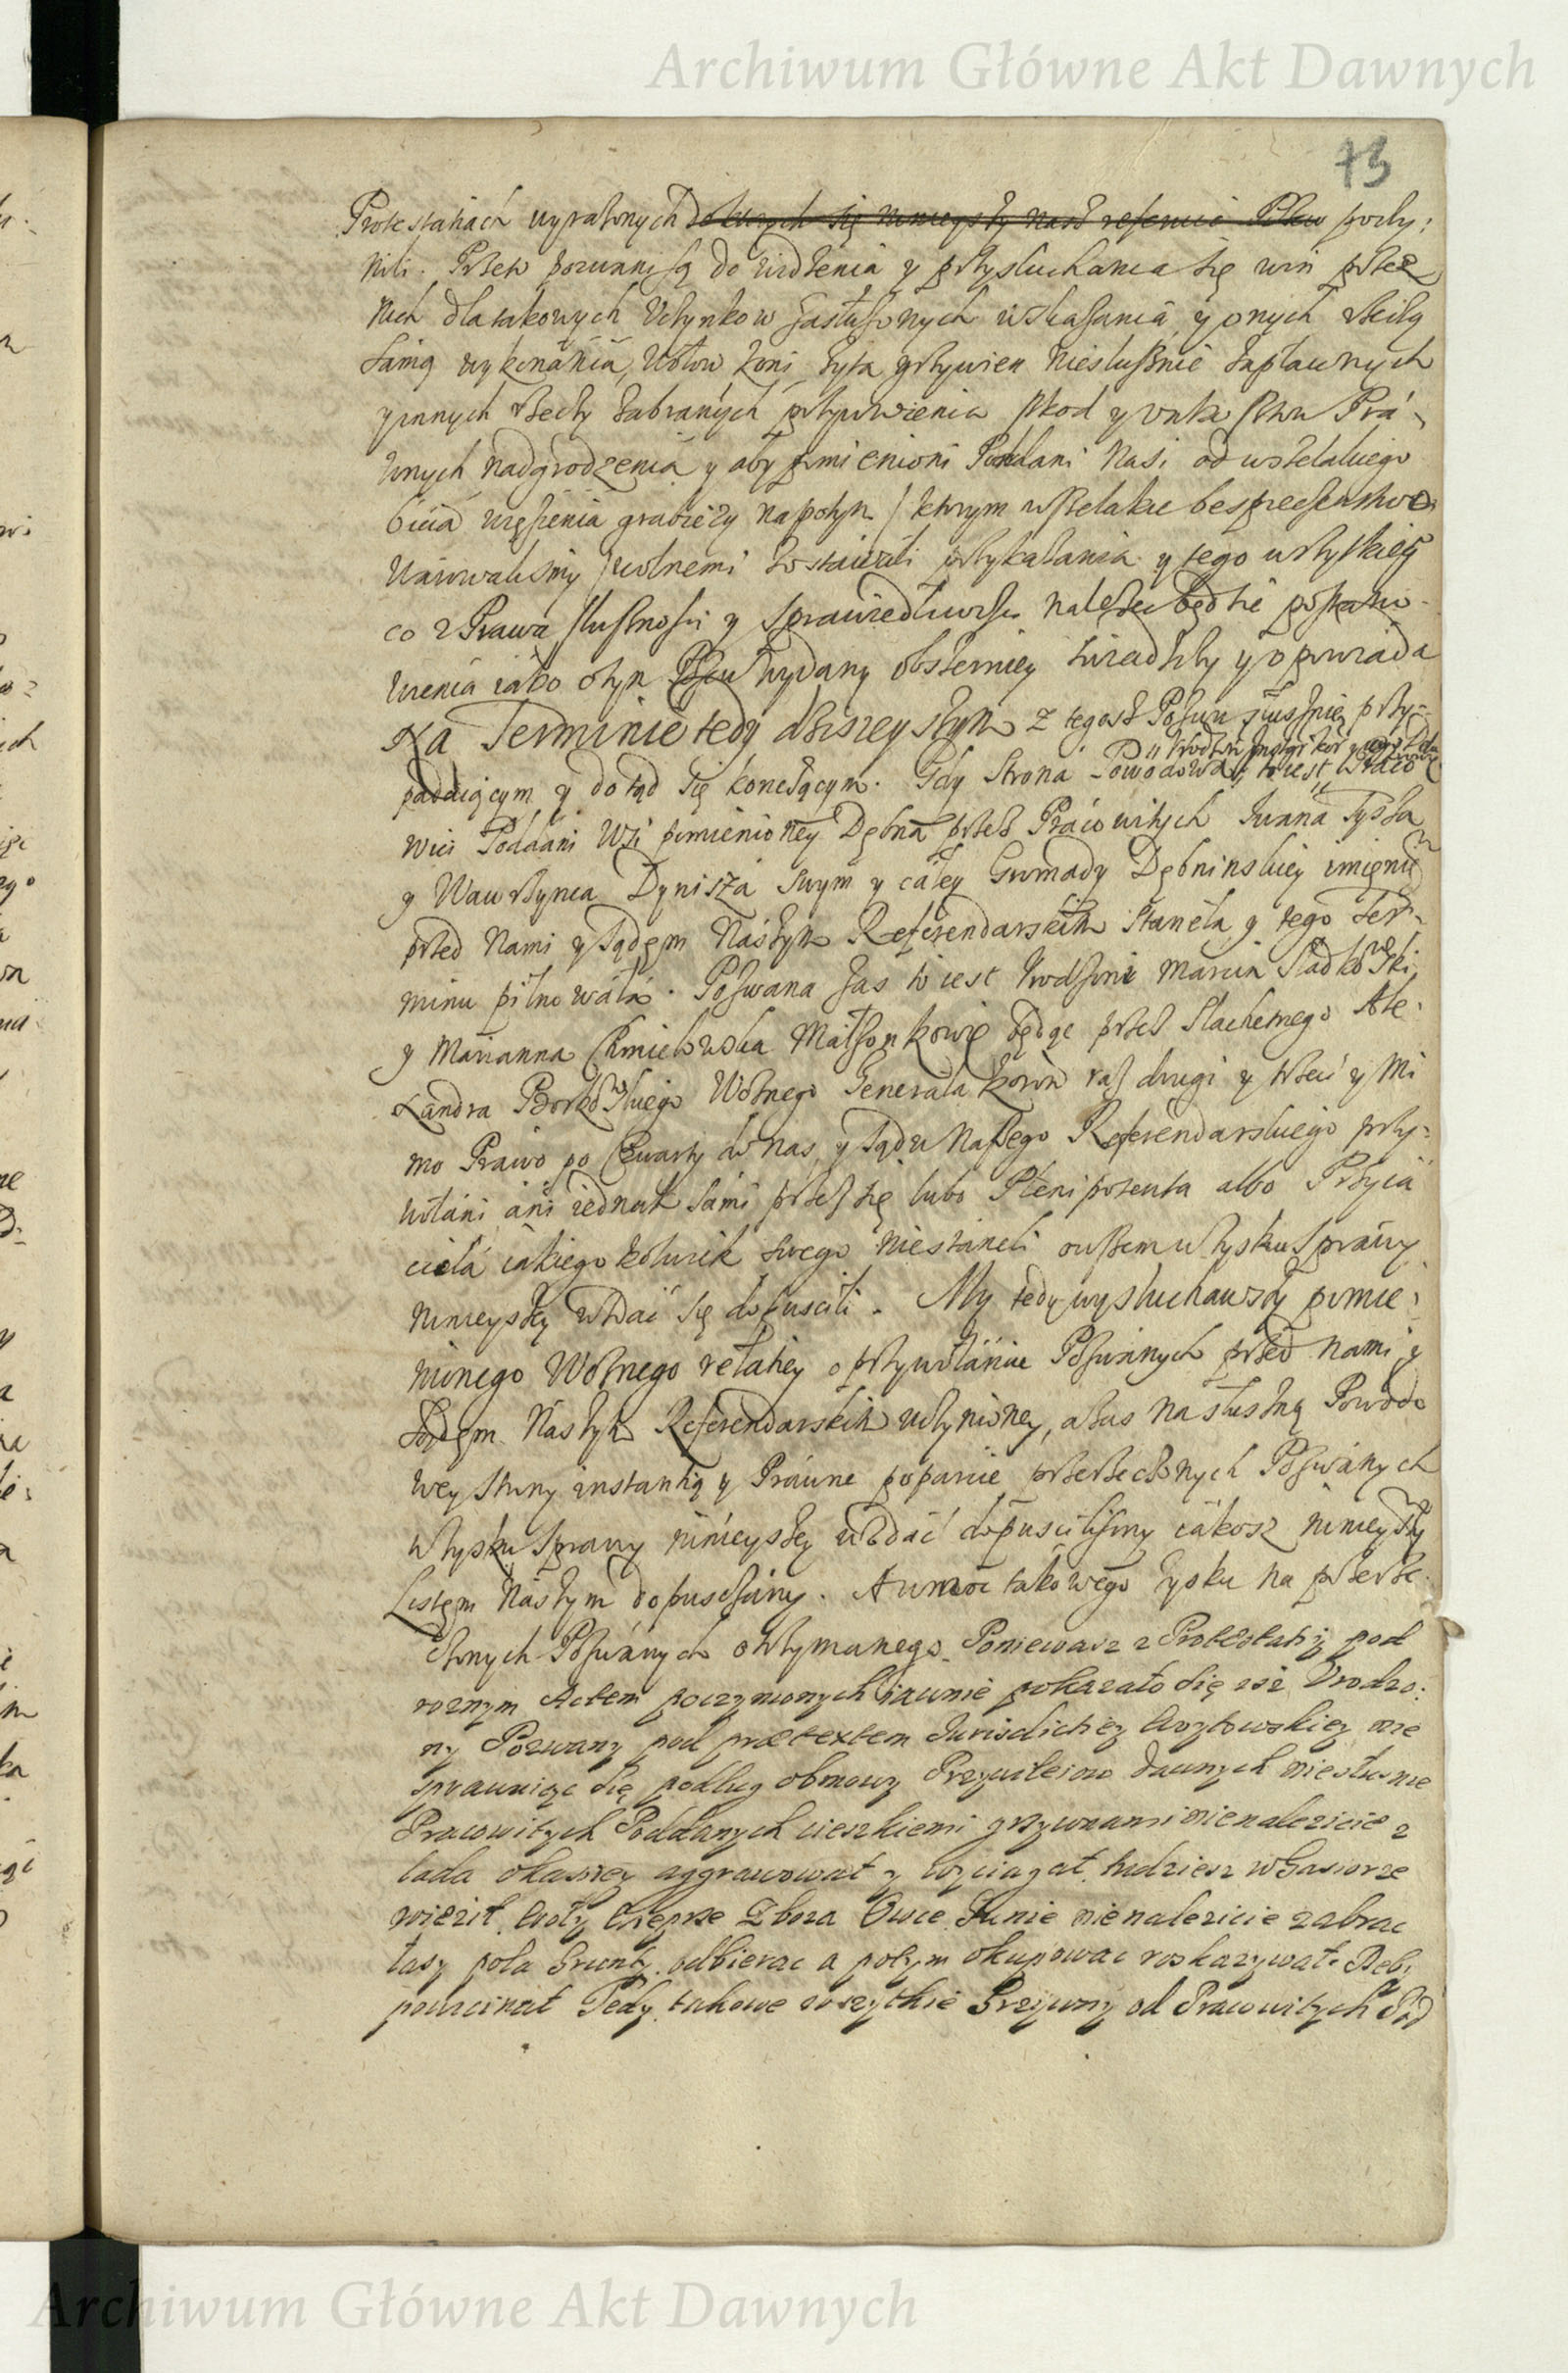 Archiwum Główne Akt Dawnych
73
Protestatiach wyrazonych do ktorych się ninieyszy nasz referuie Pozew poczy:
nili. Przeto pozwani są do widzenia y przysłuchania się win przez
nich dla takowych Uczynkow zasłużonych wskazania y onych
samą wykonania, Wołow koni żyta grzywien niesłusznie zapłaconych
y innych rzeczy zabranych przywrocenia szkod y Prá-
wnych nadgrodzenia y aby pomienioni Poddani Nasi od wszelakiego
bicia więzienia grabieży napotym / ktorym wszelakie bespieczenstwo
warowalismy / wolnemi zostawali przykazania y tego wszytkieg
co z Prawa słusznosci y sprawiedliwosci należeć będzie postano-
wienia iako o tym Pozew wydany obszerniey swiadczy y opowiada
Na Terminie tedy dzisieyszym z tegosz Pozwu słusznie przy-
padaiącym y dotąd się konczącym. Gdy Strona Powodowa to iest Praco
wici Poddani Wsi pomienioney Dębna przez Prácowitych Iwana Tysza
y Wawrzynca Dynisza swym y całey Gromady Dębninskiey imięniem
przed Nami y Sądęm Nászym Referendarskim stanęła y tego Ter-
minu pilnowała. Pozwana zas to iest Urodzeni Marcin Sladkowski
y Marianna Chmielowska Małżonkowie będąc przez Slachetnego Ale-
xandra Borkowskiego Woznego Generała Koron raz drugi y trzeci y Mi
mo Prawo po Czwarty do nas y Sądu Naszego Referendarskiego przy-
wołáni áni iednak sámi przez się lubo Plenipotenta albo Przyia
ciela iakiegokolwiek swego niestaneli owszem w zysku sprawy
ninieyszey wzdać się dopuscili. My tedy wysłuchawszy pomie-
nionego Woznego relatiey o przywołániu Pozwanych przed nami y
Sądęm Nászym Referendarskim uczynioney, a zas na słuszną Powodo
wey Strony instantią y Prawne poparcie przerzeczonych Pozwánych
w zysku sprawy ninieyszey wzdać dopuscilismy iákosz ninieyszym
Listęm Nászym dopuszczamy. A w moc takowego zysku na przerze-
czonych Pozwánych otrzymanego. Poniewasz z Protestatiy pod
roznym Actem poczynionych iawnie pokazało się isz Urodzo:
ny Pozwany pod prætextem Iurisdictiey Woytowskiey nie
sprawuiąc się podług obmowy Przywileiow dawnych niesłusnie
Pracowitych Poddanych cieszkiemi grzywnami nienalezicie z
lada okasiey aggrawował y wyciągał tudziesz w Gąsiorze
wieził. Woły Wieprze Zboza Owce Swinie nienalezicie zabrac
Łasy pola Grunty odbierac a potym okupowac roskazywał. Deby
powycinał Tedy takowe wszytkie Grzywny od Pracowitych Pod
Archiwum Główne Akt Dawnych